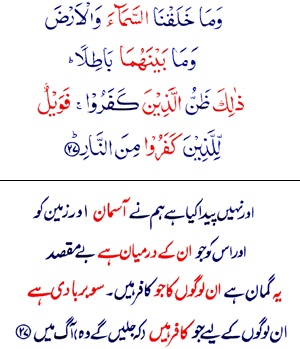 وَمَا خَلَقْنَا السَّمَآءَ وَالْاَرْضَ
وَمَا بَيْنَهُمَا بَاطِلًا ؕ
ذٰلِكَ ظَنُّ الَّذِيْنَ كَفَرُوْا ۚ فَوَيْلٌ
لِّلَّذِيْنَ كَفَرُوْا مِنَ النَّارِ ؕ ﴿۲۷﴾
اور نہیں پیدا کیا ہے ہم نے آسمان اور زمین کو
اور اس کو جو ان کے درمیان ہے بے مقصد
یہ گمان ہے ان لوگوں کا جو کافر ہیں۔ سو بربادی ہے
ان لوگوں کے لیے جو کافر ہیں کہ جلیں گے وہ آگ میں ﴿۲۷﴾